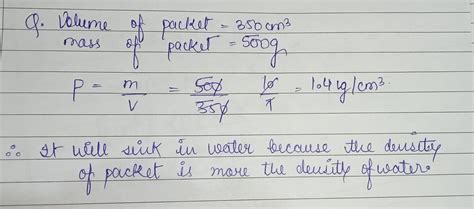 Q. Volume of packet = 350 cm³
mass of packet = 500g
P = m/v = 500/350 10/7 = 1.4 g/cm³.
∴ It will sink in water because the density
of packet is more the density of water.